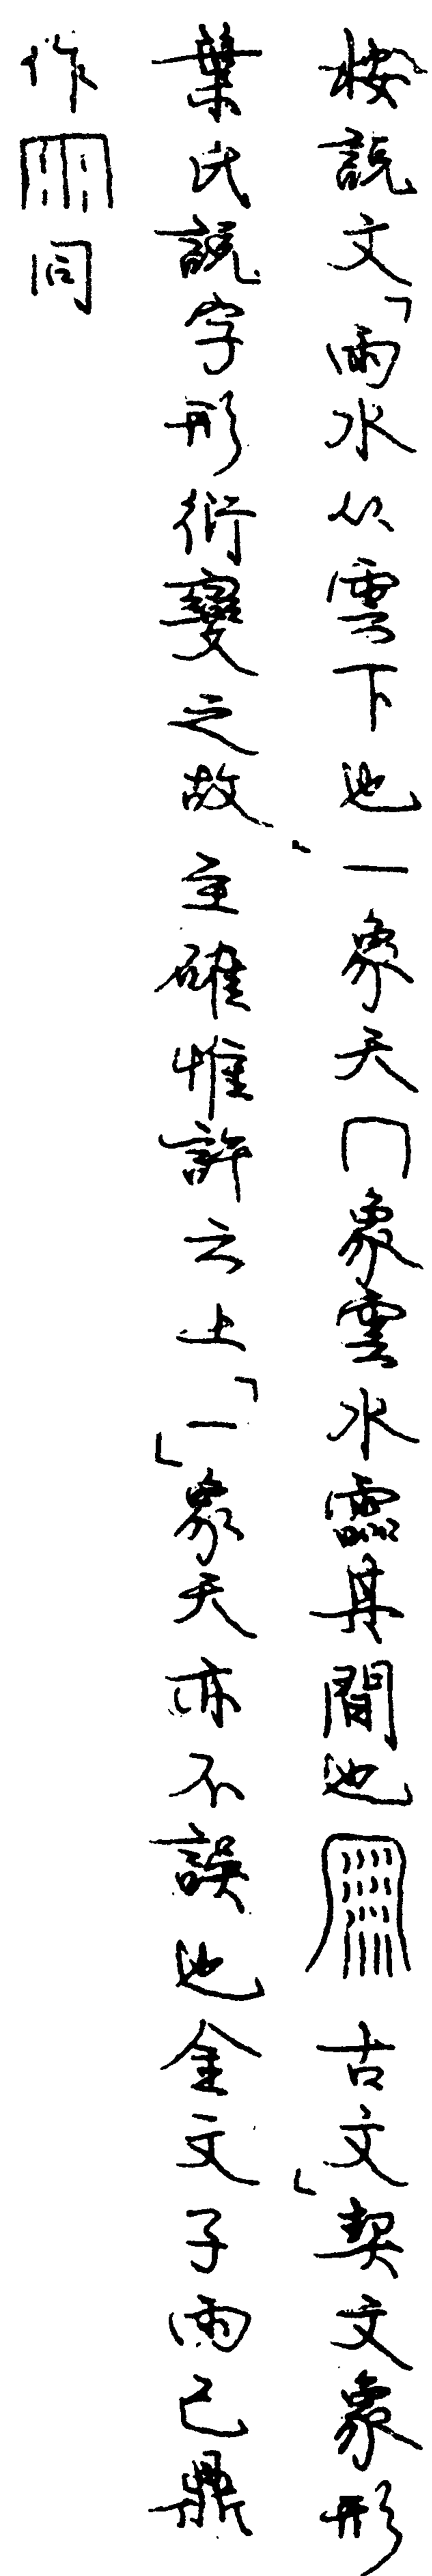 按說文「雨水从雲下也一象天冂象雲水霝其間也𠕲古文」契文象形
葉氏說字形衍變之故至確惟許云上「一」象天亦不誤也金文子雨己鼎
作同